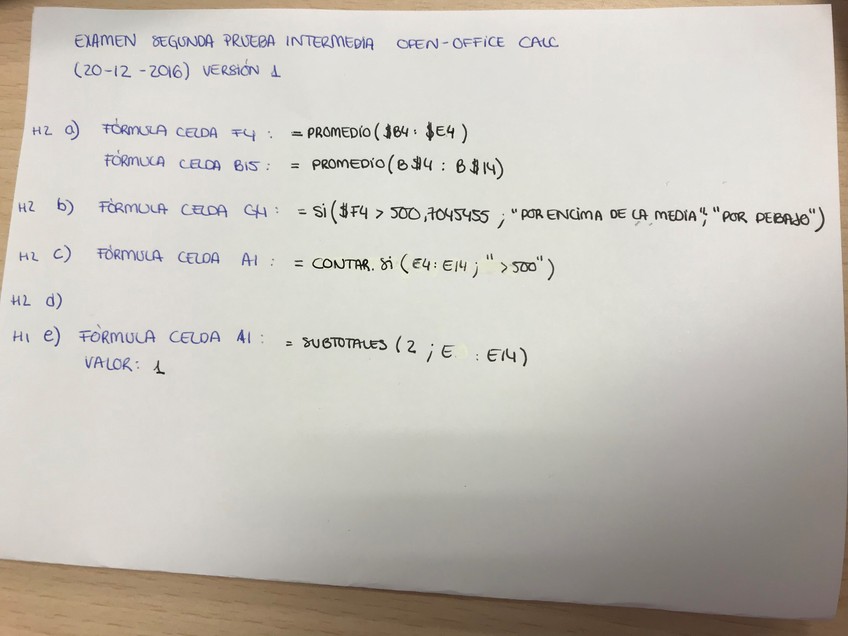 EXAMEN SEGUNDA PRUEBA INTERMEDIA OPEN-OFFICE CALC
(20-12-2016) VERSIÓN 1
H2 a) FÓRMULA CELDA F4: =PROMEDIO($B4:$E4)
FÓRMULA CELDA B15: = PROMEDIO(B$4:B$14)
H2 b) FÓRMULA CELDA G4: =SI($F4>500,7045455;"POR ENCIMA DE LA MEDIA";"POR DEBAJO")
H2 c) FÓRMULA CELDA A1: = CONTAR.SI(E4:E14;">500")
H2 d)
H1 e) FÓRMULA CELDA A1: = SUBTOTALES(2;E :E14)
VALOR: 1